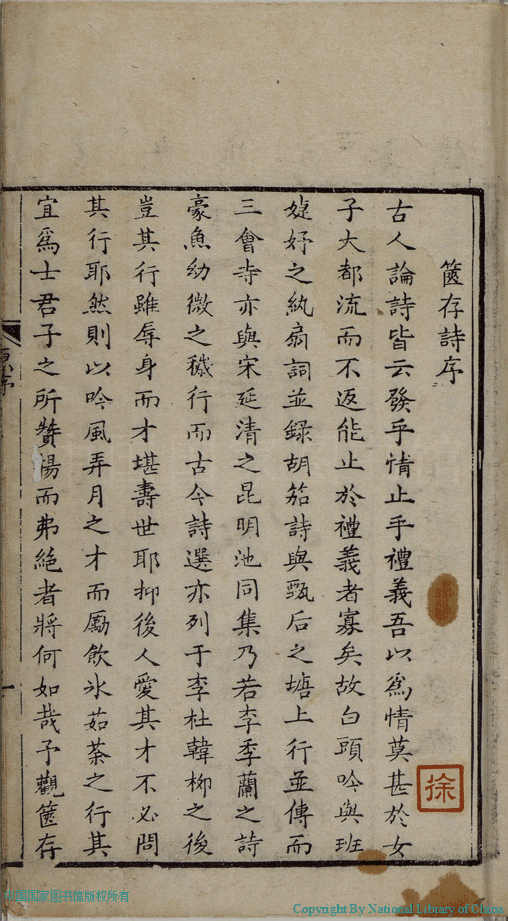 篋存詩序
古人論詩皆云發乎情止乎禮義吾以為情莫甚於女
子大都流而不返能止於禮義者寡矣故白頭吟與班
婕妤之紈扇詞並錄胡笳詩與甄后之塘上行並傳而
三會寺亦與宋延清之昆明池同集乃若李季蘭之詩
豪魚幼微之穢行而古今詩選亦列于李杜韓栁之後
豈其行雖辱身而才堪壽世耶抑後人愛其才不必問
其行耶然則以吟風弄月之才而厲飲氷茹荼之行其
宜為士君子之所贊揚而弗絕者將何如哉予觀篋存
徐
中国国家图书馆版权所有
Copyright By National Library of China